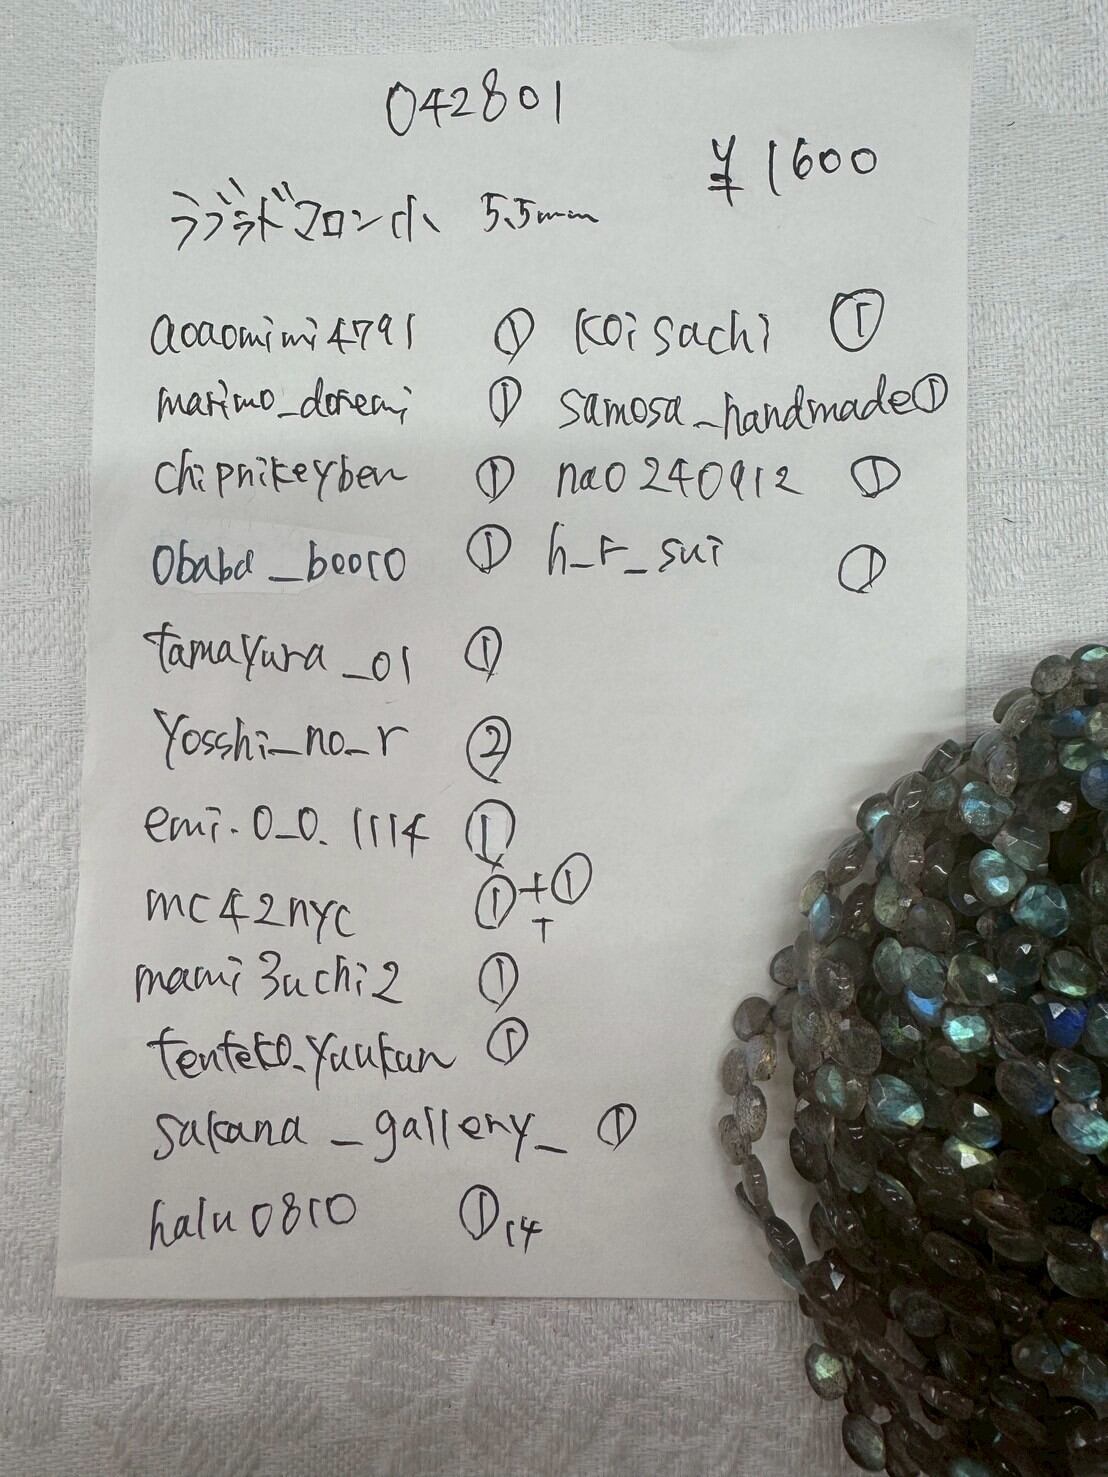 042801
¥1600
ラブラドマロン小 5.5mm
aoaomimi4791 ①
marimo_doremi ①
chipnikeyben ①
obaba_booro ①
tamayura_01 ①
Yosshi_no_r ②
emi.0_0.1114 ①
mc42nyc ①+①
T
mami3uchi2 ①
tenteko.yuukun ①
sakana_gallery_ ①
halu0810 ①14
koisachi ①
samosa_handmade ①
nao240912 ①
h_r_sui ①